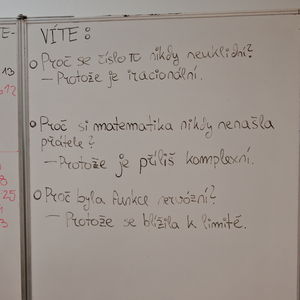 VÍTE:
Proč se číslo π nikdy neuklidní?
– Protože je iracionální.
Proč si matematika nikdy nenašla
přátele?
– Protože je příliš komplexní.
Proč byla funkce nervózní?
– Protože se blížila k limitě.
E-
13
25